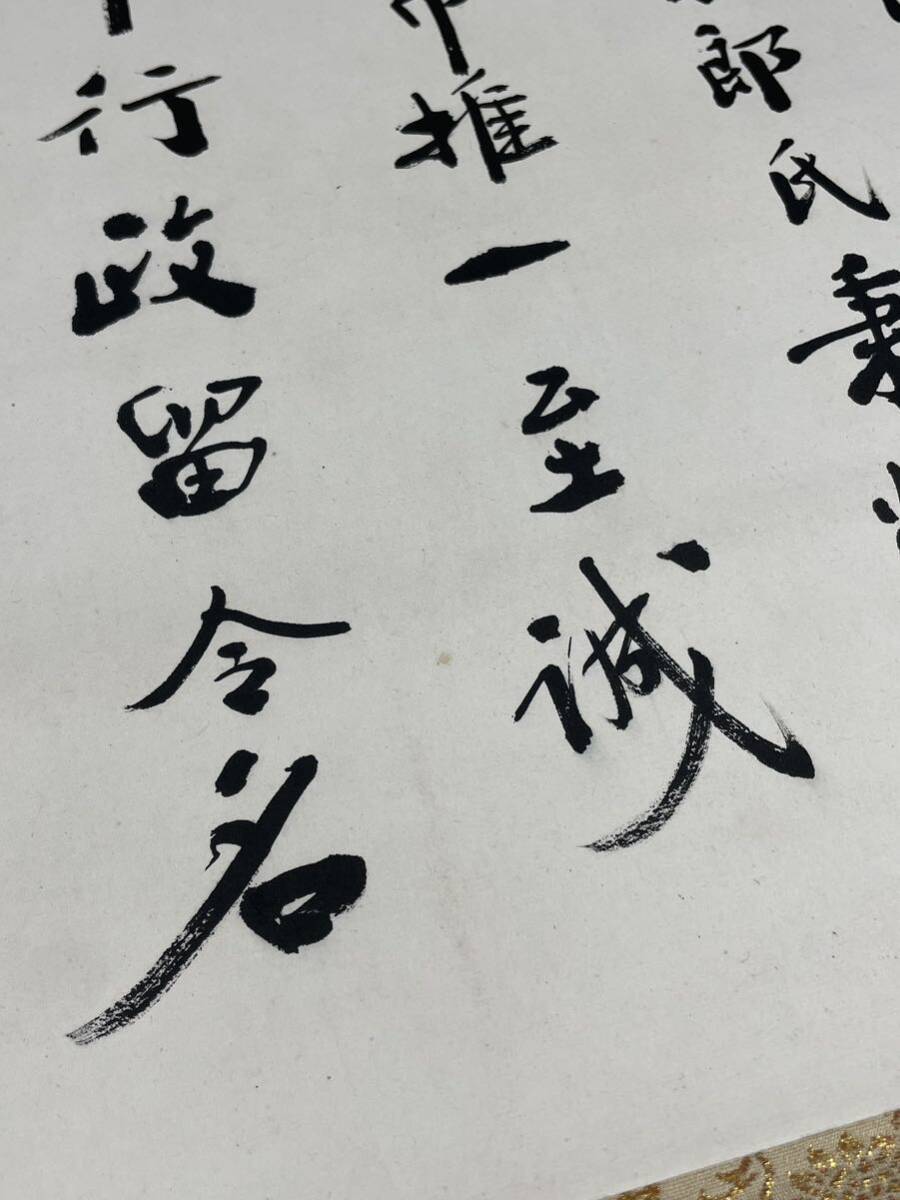 郎氏
推一至誠
行政留令名